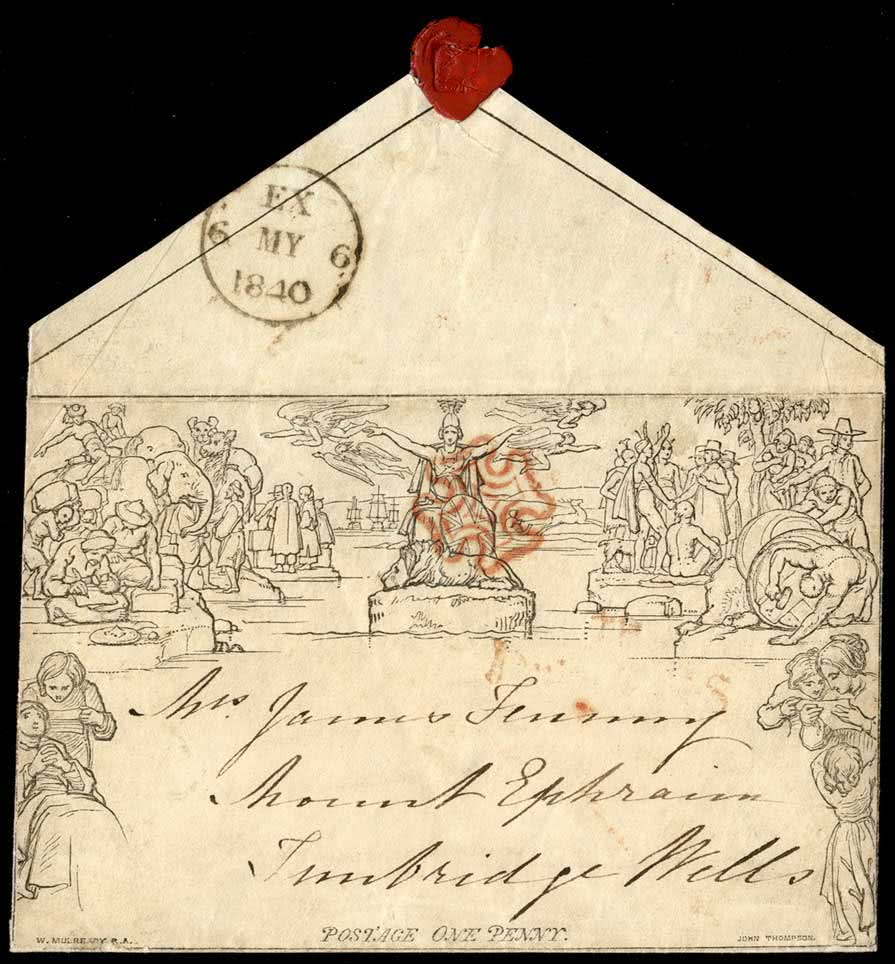 EX
6 MY 6
1840
Mrs. James
Mount Ephraim
Tunbridge Wells
W. MULREADY. R.A.
POSTAGE ONE PENNY.
JOHN THOMPSON.